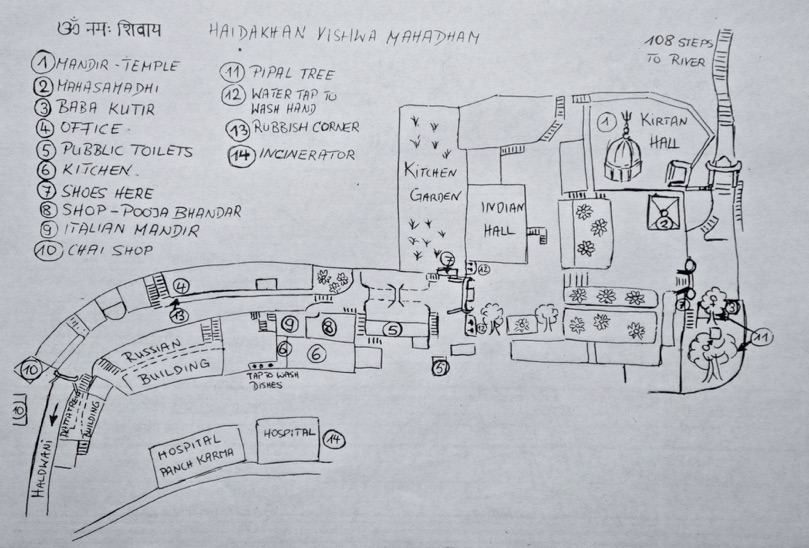 ॐ नमः शिवाय
HAIDAKHAN VISHWA MAHADHAM
1 MANDIR-TEMPLE
2 MAHASAMADHI
3 BABA KUTIR
4 OFFICE
5 PUBBLIC TOILETS
6 KITCHEN.
7 SHOES HERE
8 SHOP-POOJA BHANDAR
9 ITALIAN MANDIR
10 CHAI SHOP
11 PIPAL TREE
12 WATER TAP TO
WASH HAND
13 RUBBISH CORNER
14 INCINERATOR
108 STEPS
TO RIVER
1
KIRTAN
HALL
KITCHEN
GARDEN
INDIAN
HALL
2
7
12
4
13
9
8
5
3
11
RUSSIAN
BUILDING
6
6
5
10
TAP TO WASH
DISHES
BUILDING
HALDWANI
HOSPITAL
PANCH KARMA
HOSPITAL
14